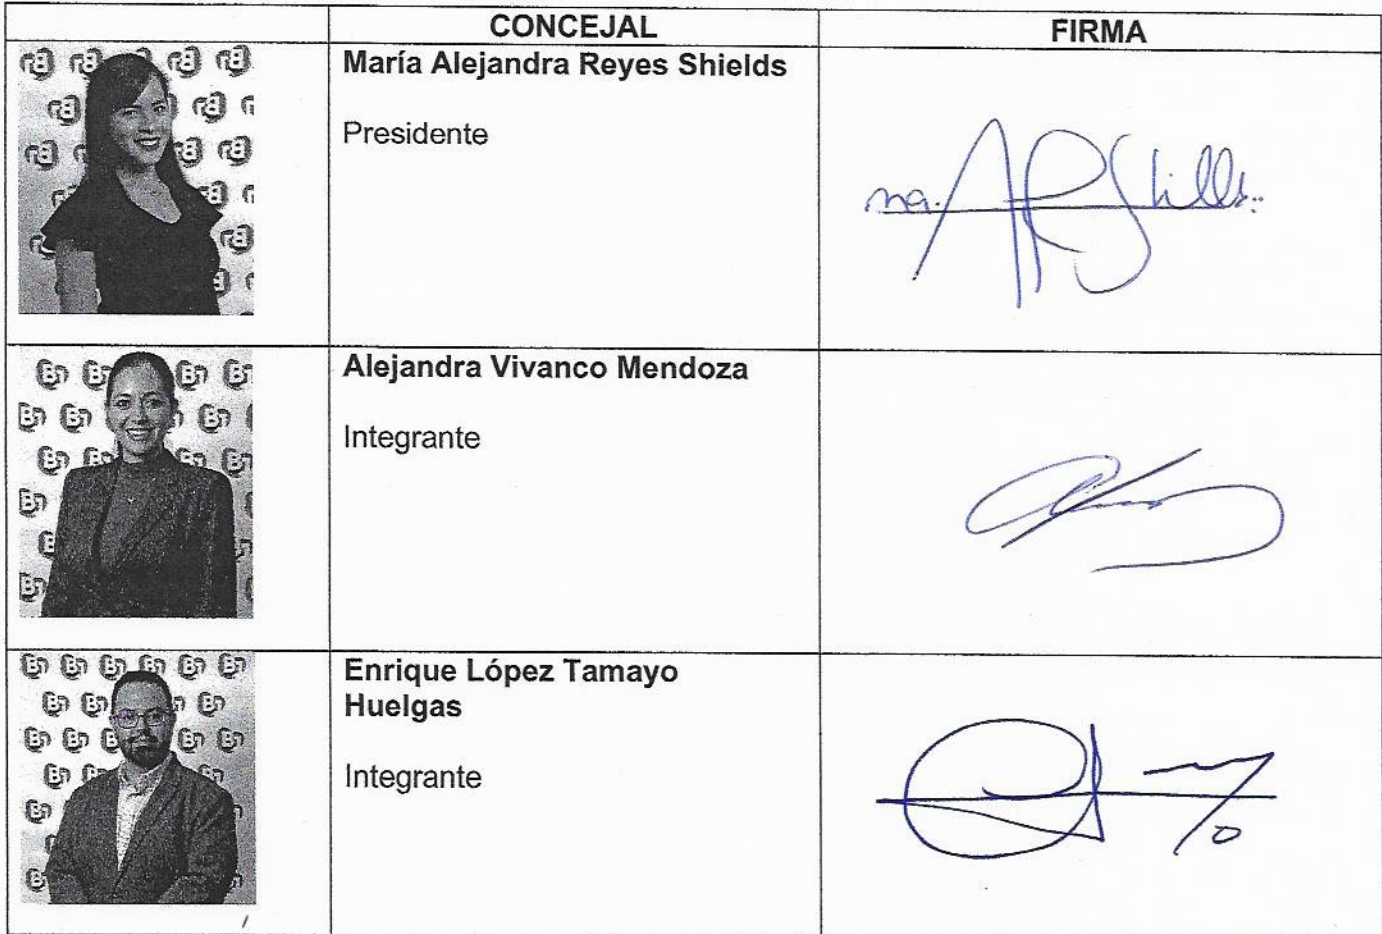 CONCEJAL
FIRMA
María Alejandra Reyes Shields
Presidente
Alejandra Vivanco Mendoza
Integrante
Enrique López Tamayo
Huelgas
Integrante